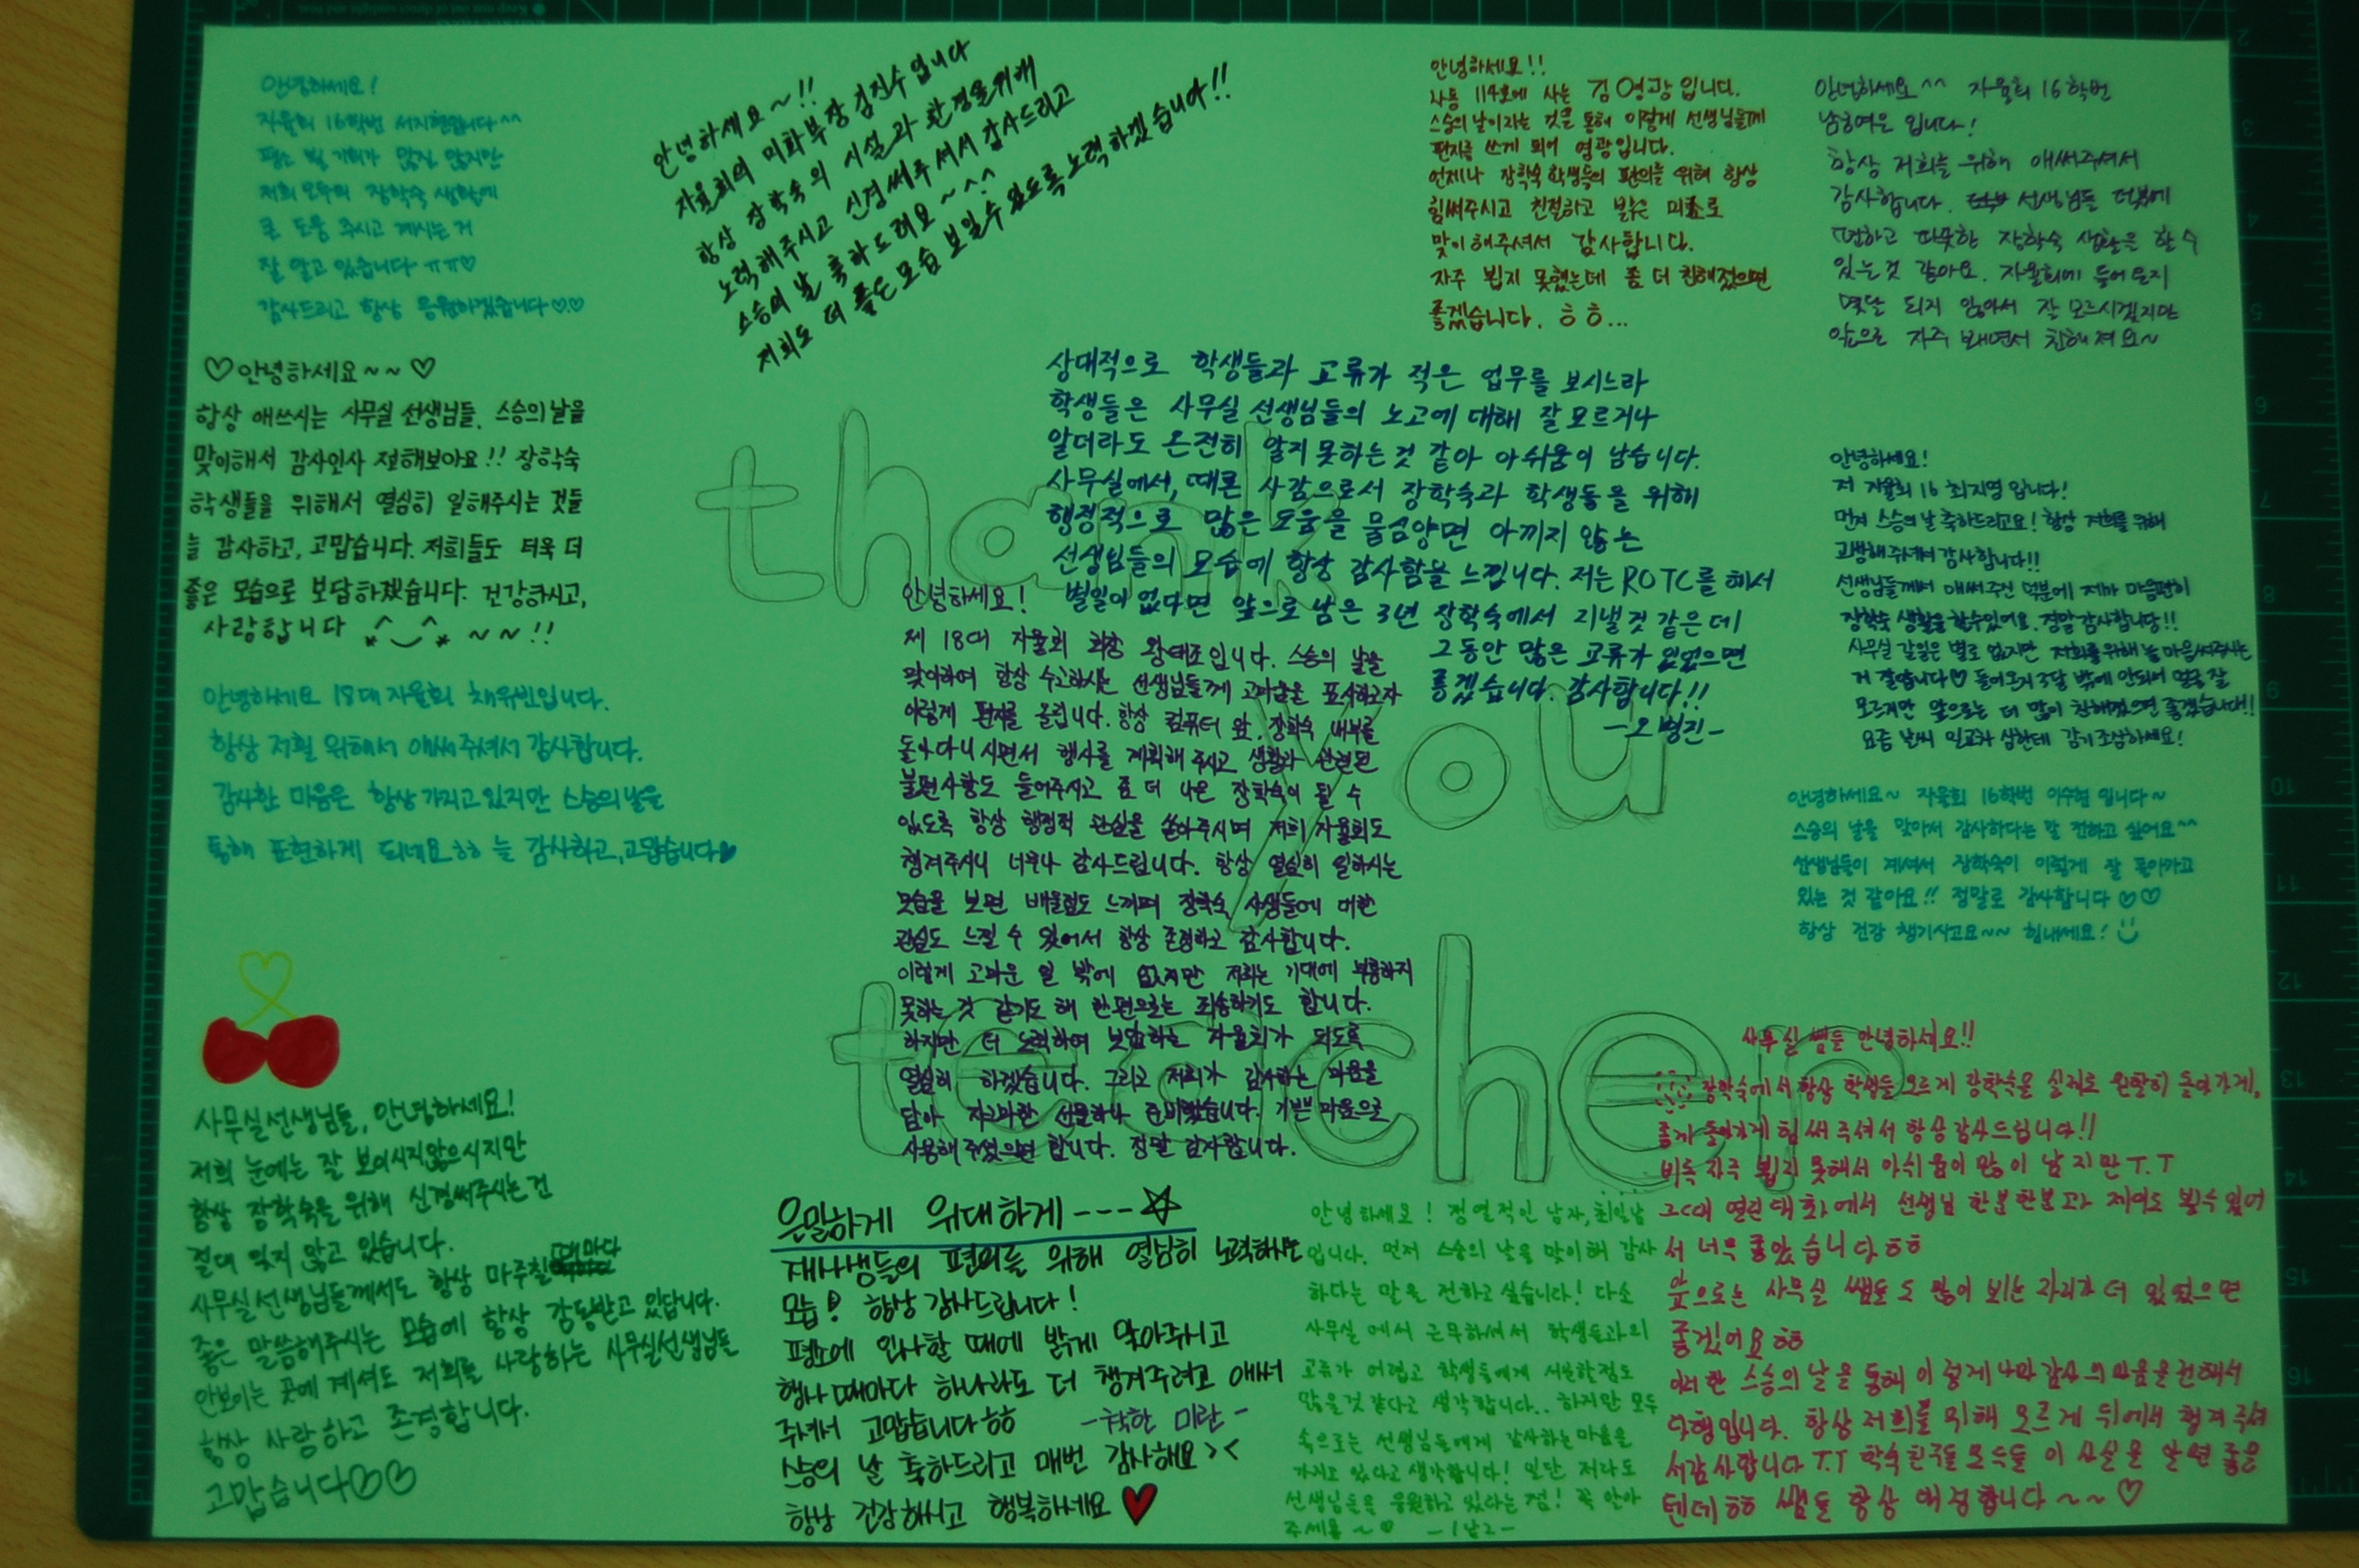 안녕하세요!
자율회 16학번 서지현입니다^^
평소 뵐 기회가 많진 않지만
저희 모두의 장학숙 생활에
큰 도움 주시고 계시는 거
잘 알고 있습니다 ㅠㅠ♡
감사드리고 항상 응원하겠습니다♡.♡
♡안녕하세요~~♡
항상 애쓰시는 사무실 선생님들, 스승의날을
맞이해서 감사인사 전해보아요!! 장학숙
학생들을 위해서 열심히 일해주시는 것들
늘 감사하고, 고맙습니다. 저희들도 더욱 더
좋은 모습으로 보답하겠습니다. 건강하시고,
사랑합니다 *^‿^* ~~!!
안녕하세요 18대 자율회 채유빈입니다.
항상 저흴 위해서 애써주셔서 감사합니다.
감사한 마음은 항상 가지고 있지만 스승의날을
통해 표현하게 되네요ㅎㅎ 늘 감사하고, 고맙습니다♥
사무실선생님들, 안녕하세요!
저희 눈에는 잘 보이시지않으시지만
항상 장학숙을 위해 신경써주시는건
절대 잊지 않고 있습니다.
사무실선생님들께서도 항상 마주칠때마다
좋은 말씀해주시는 모습에 항상 감동받고 있답니다.
안보이는 곳에 계셔도 저희를 사랑하는 사무실선생님들
항상 사랑하고 존경합니다.
고맙습니다♡♡
안녕하세요~!!
자율회의 미화부장 김진수입니다
항상 장학숙의 시설과 환경을위해
노력해주시고 신경써주셔서 감사드리고
스승의 날 축하드려요~^^
저희도 더 좋은모습 보일수 있도록 노력하겠습니다!!
thank
you
teacher
상대적으로 학생들과 교류가 적은 업무를 보시느라
학생들은 사무실 선생님들의 노고에 대해 잘 모르거나
알더라도 온전히 알지 못하는것 같아 아쉬움이 남습니다.
사무실에서, 때론 사감으로서 장학숙과 학생들을 위해
행정적으로 많은 도움을 물심양면 아끼지 않는
선생님들의 모습에 항상 감사함을 느낍니다. 저는 ROTC를 해서
별일이 없다면 앞으로 남은 3년 장학숙에서 지낼것 같은데
그동안 많은 교류가 있었으면
좋겠습니다. 감사합니다!!
-오병진-
안녕하세요!
제 18대 자율회 회장 왕태조입니다. 스승의 날을
맞이하여 항상 수고하시는 선생님들께 고마움을 표시하고자
이렇게 편지를 올립니다. 항상 컴퓨터 앞, 장학숙 내부를
돌아다니시면서 행사를 계획해 주시고 생활과 관련된
불편사항도 들어주시고 좀 더 나은 장학숙이 될 수
있도록 항상 행정적 관심을 쏟아주시며 저희 자율회도
챙겨주시니 너무나 감사드립니다. 항상 열심히 일하시는
모습을 보면 배울점도 느끼며 장학숙 사생들에 대한
관심도 느낄 수 있어서 항상 존경하고 감사합니다.
이렇게 고마운 일 밖에 없지만 저희는 기대에 부응하지
못하는 것 같기도 해 한편으로는 죄송하기도 합니다.
하지만 더 노력하여 보답하는 자율회가 되도록
열심히 하겠습니다. 그리고 저희가 감사하는 마음을
담아 자그마한 선물하나 준비했습니다. 기쁜 마음으로
사용해 주셨으면 합니다. 정말 감사합니다.
은밀하게 위대하게---☆
재사생들의 편의를 위해 열심히 노력하시는
모습! 항상 감사드립니다!
평소에 인사할 때에 밝게 맞아주시고
행사때마다 하나라도 더 챙겨주려고 애써
주셔서 고맙습니다ㅎㅎ -착한 미란-
스승의 날 축하드리고 매번 감사해요><
항상 건강하시고 행복하세요♥
안녕하세요!!
사동 114호에 사는 김영광입니다.
스승의 날이라는 것을 통해 이렇게 선생님들께
편지를 쓰게 되어 영광입니다.
언제나 장학숙학생들의 편의를 위해 항상
힘써주시고 친절하고 밝은 미소로
맞이해주셔서 감사합니다.
자주 뵙지 못했는데 좀 더 친해졌으면
좋겠습니다. ㅎㅎ...
안녕하세요^^ 자율회 16학번
남하영은 입니다!
항상 저희를 위해 애써주셔서
감사합니다. 선생님들 덕분에
편하고 따뜻한 장학숙 생활은 할 수
있는것 같아요. 자율회에 들어온지
몇달 되지 않아서 잘 모르시겠지만
앞으로 자주 뵈면서 친해져요~
안녕하세요!
저 자율회 16 최지영입니다!
먼저 스승의날 축하드리고요! 항상 저희를 위해
고생해주셔서 감사합니다!!
선생님들께서 애써주신 덕분에 제가 마음편히
장학숙 생활을 할수있어요. 정말감사합니당!!
사무실 갈일은 별로 없지만 저희를위해 늘 마음써주시는
거 잘압니다♡ 들어온지 3달 밖에 안되어 얼굴 잘
모르지만 앞으로는 더 많이 친해졌으면 좋겠습니다!!
요즘 날씨 일교차 심한데 감기조심하세요!
안녕하세요~ 자율회 16학번 이수현입니다~
스승의 날을 맞아서 감사하다는 말 전하고 싶어요^^
선생님들이 계셔서 장학숙이 이렇게 잘 돌아가고
있는 것 같아요!! 정말로 감사합니다♡♡
항상 건강 챙기시고요~~ 힘내세요!
사무실 쌤들 안녕하세요!!
장학숙에서 항상 학생들 모르게 장학숙을 실제로 원활히 돌아가게,
좋게 돌아가게 힘써주셔서 항상감사드립니다!!
비록 자주 뵙지 못해서 아쉬움이 많이 남지만 T.T
그때 열린대화에서 선생님 한분한분 볼수있어
서 너무 좋았습니다ㅎㅎ
앞으로는 사무실 쌤들도 많이 뵈는 자리가 더 있었으면
좋겠어요ㅎㅎ
이러한 스승의 날을 통해 이렇게나마 감사의 마음을 전해서
다행입니다. 항상 저희를 위해 모르게 뒤에서 챙겨주셔
서 감사합니다 T.T 학숙친구들 모두들 이 사실을 알면 좋을
텐데ㅎㅎ 쌤들 항상 애정합니다~~♡
안녕하세요! 정열적인 남자, 최일남
입니다. 먼저 스승의 날을 맞이해 감사
하다는 말을 전하고 싶습니다! 다소
사무실에서 근무하셔서 학생들과의
교류가 어렵고 학생들에게 서운한점도
많을것 같다고 생각합니다.. 하지만 모두
속으로는 선생님들에게 감사하는마음을
가지고 있다고 생각합니다! 일단 저라도
선생님들을 응원하고 있다는 점! 꼭 알아
주세용~♡